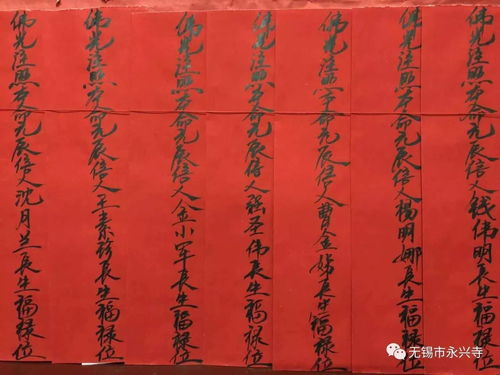 佛光注照本命元辰信人钱伟明长生福禄位
佛光注照本命元辰信人杨明娜长生福禄位
佛光注照本命元辰信人曹金娣长生福禄位
佛光注照本命元辰信人强圣伟长生福禄位
佛光注照本命元辰信人金小军长生福禄位
佛光注照本命元辰信人王素珍长生福禄位
佛光注照本命元辰信人沈月兰长生福禄位
无锡市永兴寺